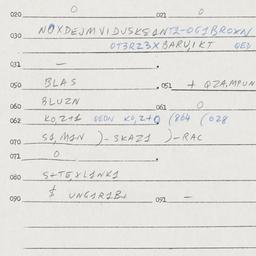 020 0 021 0
030 NOXDEJMVIDUSKSANTZ-061BROXN
0T3RZ3XBARU,IKT OED
031 -
050 BLAS 051 + QZA,MPUN
060 BLUZN 061 0
062 KO,Z+1 OEDN KO,Z+0 (864 (028
070 S1,M1N )-SKAZ1 )-RAC
071 0
080 S+TE,XL1NK1
090 $ UNG1R1B+ 091 -